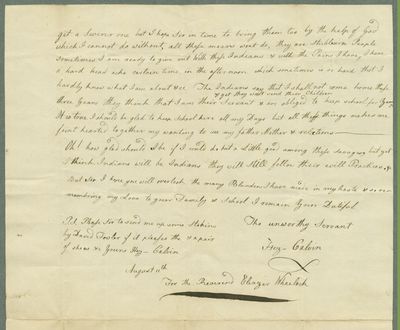 got a severer one but I hope Sir in time to bring them too by the help of God
which I cannot do without, all these means wont do, they are stubborn People
sometimes I am ready to give out with these Indians & with the Pains I have, I have
a hard head ake certain time in the afternoon which sometimes is so hard that I
hardly know what I am about &c. The Indians say that I shall not come home these
& yet they wont send their Children
three Years they think that I am their Servant & am obliged to keep school for
It is true I should be glad to keep School here all my Days but all these things makes me
faint hearted together my wanting to see my father Mother & relations
Oh! how glad should I be if I could do but a Little good among these Savages but yet
I think Indians will be Indians they will Still follow their evill Practices &
But Sir I hope you will overlook the many Blunders I have made in my haste & so re
membering my Love to your Family & School I remain Your Dutiful
P.S. Please Sir to send me up some Stockins
by David Fowler if it pleases the & a pair
of shoes & Yours Hez- Calvin
Tho unworthy Servant
Hez- Calvin
August 11th
For the Reverend Eleazar Wheelock